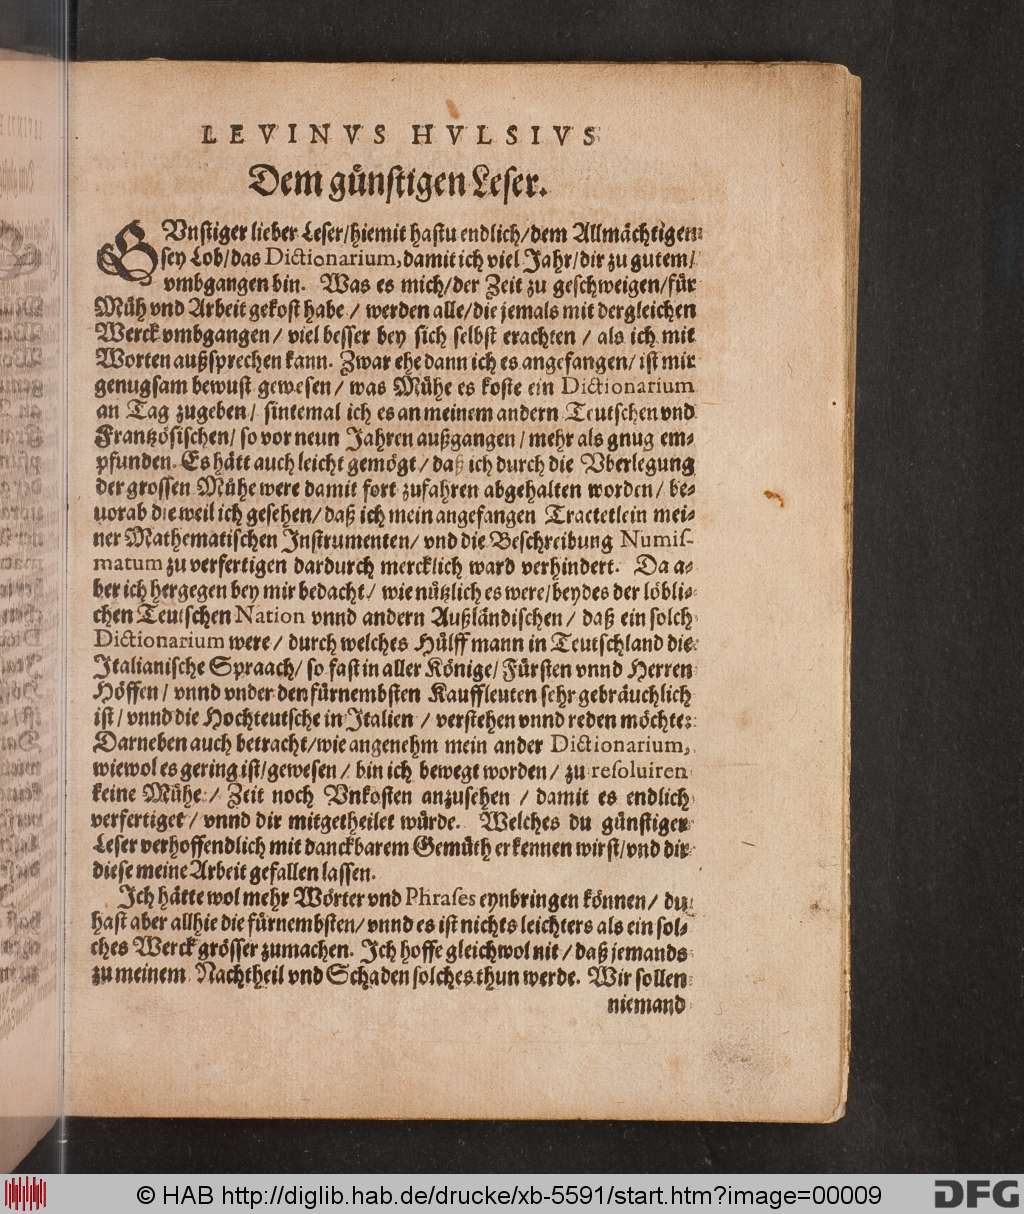 LEVINVS HVLSIVS
Dem günstigen Leser.
GVnstiger lieber Leser/hiemit hastu endlich/dem Allmächtigen
sey Lob/das Dictionarium, damit ich viel Jahr/dir zu gutem/
vmbgangen bin. Was es mich/der Zeit zu geschweigen/für
Müh vnd Arbeit gekost habe / werden alle/die jemals mit dergleichen
Werck vmbgangen / viel besser bey sich selbst erachten / als ich mit
Worten außsprechen kann. Zwar ehe dann ich es angefangen/ ist mir
genugsam bewust gewesen / was Mühe es koste ein Dictionarium
an Tag zugeben/ sintemal ich es an meinem andern Teutschen vnd
Frantzösischen/ so vor neun Jahren außgangen / mehr als gnug em-
pfunden. Es hätt auch leicht gemögt / daß ich durch die Vberlegung
der grossen Mühe were damit fort zufahren abgehalten worden/ be-
uorab dieweil ich gesehen/ daß ich mein angefangen Tractetlein mei-
ner Mathematischen Instrumenten/ vnd die Beschreibung Numis-
matum zu verfertigen dardurch mercklich ward verhindert. Da a-
ber ich hergegen bey mir bedacht/ wie nützlich es were/beydes der löbli-
chen Teutschen Nation vnnd andern Außländischen / daß ein solch
Dictionarium were / durch welches Hülff mann in Teutschland die
Italianische Spraach/ so fast in aller Könige/ Fürsten vnnd Herren
Höffen / vnnd vnder den fürnembsten Kauffleuten sehr gebräuchlich
ist / vnnd die Hochteutsche in Italien / verstehen vnnd reden möchte:
Darneben auch betracht/wie angenehm mein ander Dictionarium,
wiewol es gering ist/gewesen / bin ich bewegt worden / zu resoluiren
keine Mühe / Zeit noch Vnkosten anzusehen / damit es endlich
verfertiget / vnnd dir mitgetheilet würde. Welches du günstiger
Leser verhoffendlich mit danckbarem Gemüth erkennen wirst/ vnd dir
diese meine Arbeit gefallen lassen.
Ich hätte wol mehr Wörter vnd Phrases eynbringen können / du
hast aber allhie die fürnembsten/ vnnd es ist nichts leichters als ein sol-
ches Werck grösser zumachen. Ich hoffe gleichwol nit / daß jemands
zu meinem Nachtheil vnd Schaden solches thun werde. Wir sollen
niemand
© HAB http://diglib.hab.de/drucke/xb-5591/start.htm?image=00009
DFG